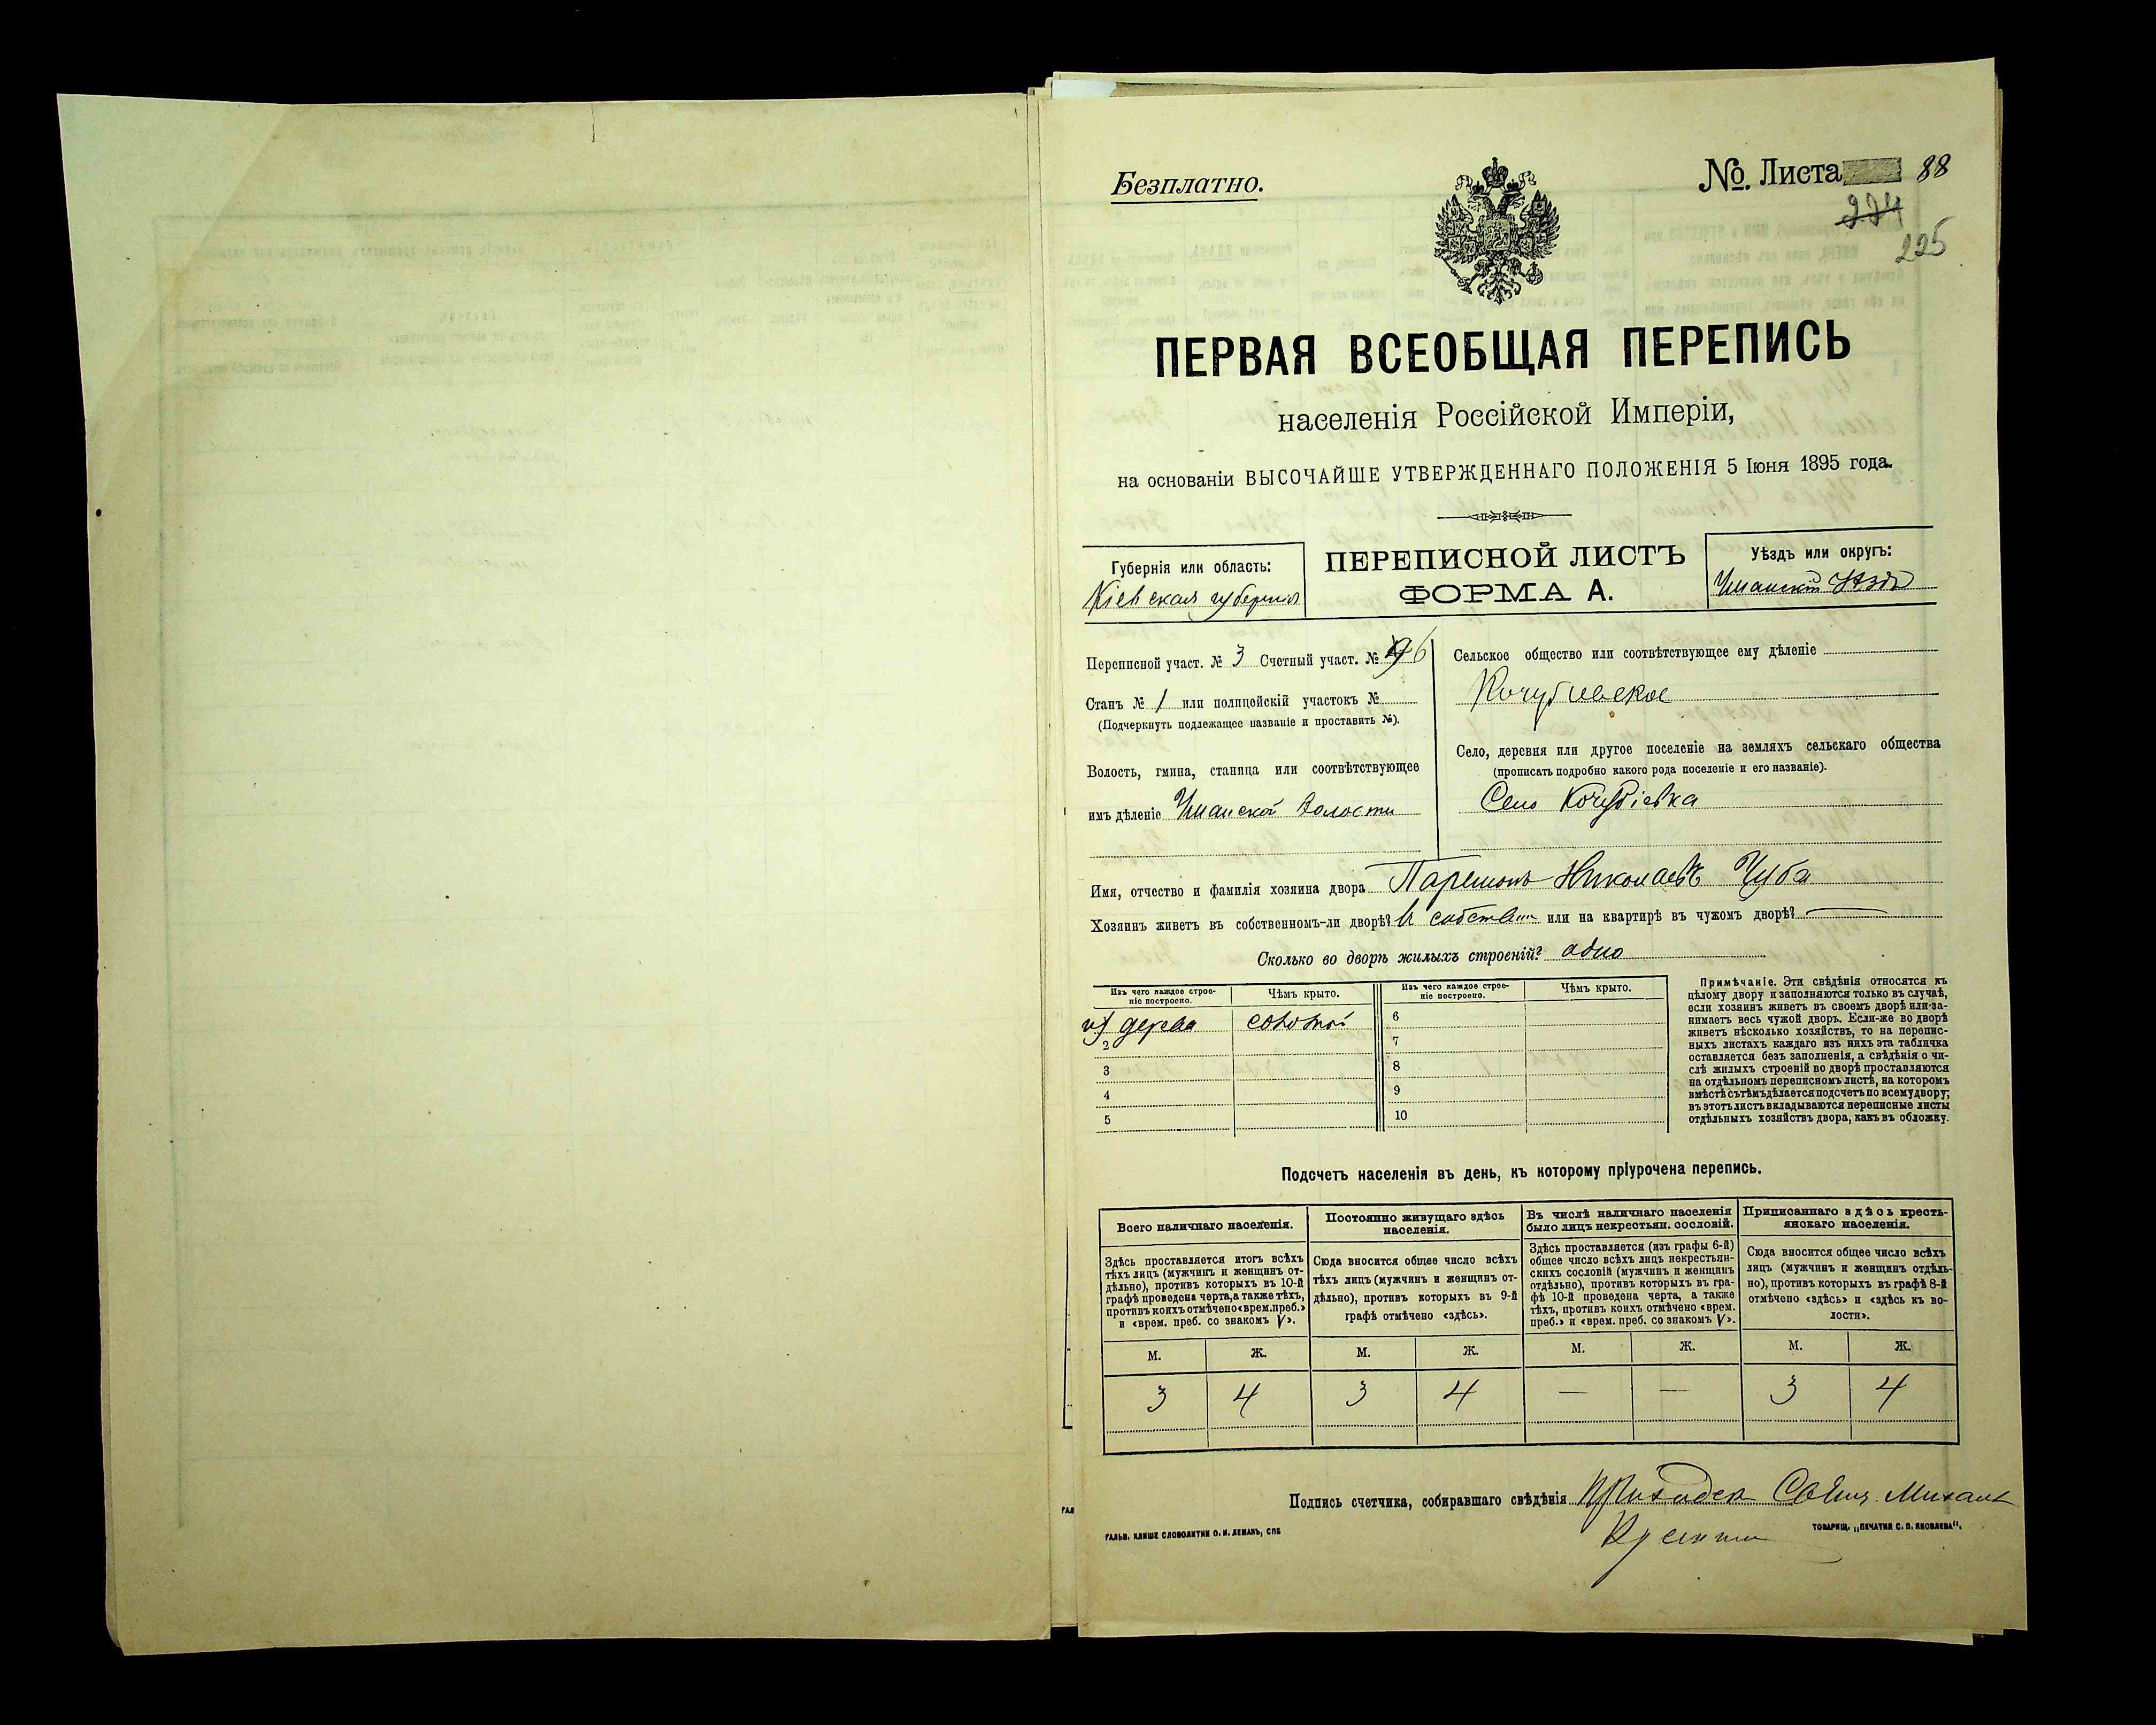 Безплатно.
№. Листа 88
224
225
ПЕРВАЯ ВСЕОБЩАЯ ПЕРЕПИСЬ
населенія Россійской Имперіи,
на основаніи ВЫСОЧАЙШЕ УТВЕРЖДЕННАГО ПОЛОЖЕНІЯ 5 Іюня 1895 года.
Губернія или область:
Кіевская губернія
ПЕРЕПИСНОЙ ЛИСТЪ
ФОРМА А.
Уѣздъ или округъ:
Уманскій Уѣздъ
Переписной участ. № 3 Счетный участ. № 6
Станъ № 1 или полицейскій участокъ №
(Подчеркнуть подлежащее названіе и проставить №).
Волость, гмина, станица или соотвѣтствующее
имъ дѣленіе Уманской Волости
Сельское общество или соотвѣтствующее ему дѣленіе
Кочубиевское
Село, деревня или другое поселеніе на земляхъ сельскаго общества
(прописать подробно какого рода поселеніе и его названіе).
Село Кочубіевка
Имя, отчество и фамилія хозяина двора Паремонъ Николаевъ Чуба
Хозяинъ живетъ въ собственномъ-ли дворѣ? в собствен или на квартирѣ въ чужомъ дворѣ? —
Сколько во дворѣ жилыхъ строеній? одно
Изъ чего каждое строе-
ніе построено.
Чѣмъ крыто.
Изъ чего каждое строе-
ніе построено.
Чѣмъ крыто.
из дерева соломой
2
3
4
5
6
7
8
9
10
Примѣчаніе. Эти свѣдѣнія относятся къ
цѣлому двору и заполняются только въ случаѣ,
если хозяинъ живетъ въ своемъ дворѣ или за-
нимаетъ весь чужой дворъ. Если-же во дворѣ
живетъ нѣсколько хозяйствъ, то на перепис-
ныхъ листахъ каждаго изъ нихъ эта табличка
оставляется безъ заполненія, а свѣдѣнія о чи-
слѣ жилыхъ строеній во дворѣ проставляются
на отдѣльномъ переписномъ листѣ, на которомъ
вмѣстѣ съ тѣмъ дѣлается подсчетъ по всему двору;
въ этотъ листъ вкладываются переписные листы
отдѣльныхъ хозяйствъ двора, какъ въ обложку.
Подсчетъ населенія въ день, къ которому пріурочена перепись.
Всего наличнаго населенія.
Здѣсь проставляется итогъ всѣхъ
тѣхъ лицъ (мужчинъ и женщинъ от-
дѣльно), противъ которыхъ въ 10-й
графѣ проведена черта, а также тѣхъ,
противъ коихъ отмѣчено «врем. преб.»
и «врем. преб. со знакомъ V».
Постоянно живущаго здѣсь
населенія.
Сюда вносится общее число всѣхъ
тѣхъ лицъ (мужчинъ и женщинъ от-
дѣльно), противъ которыхъ въ 9-й
графѣ отмѣчено «здѣсь».
Въ числѣ наличнаго населенія
было лицъ некрестьян. сословій.
Здѣсь проставляется (изъ графы 6-й)
общее число всѣхъ лицъ некрестьян-
скихъ сословій (мужчинъ и женщинъ
отдѣльно), противъ которыхъ въ гра-
фѣ 10-й проведена черта, а также
тѣхъ, противъ коихъ отмѣчено «врем.
преб.» и «врем. преб. со знакомъ V».
Приписаннаго здѣсь кресть-
янскаго населенія.
Сюда вносится общее число всѣхъ
лицъ (мужчинъ и женщинъ отдѣль-
но), противъ которыхъ въ графѣ 8-й
отмѣчено «здѣсь» и «здѣсь къ во-
лости».
М. Ж. М. Ж. М. Ж. М. Ж.
3 4 3 4 — — 3 4
Подпись счетчика, собиравшаго свѣдѣнія Михаил
ГАЛЬВ. КЛИШЕ СЛОВОЛИТНИ О. И. ЛЕМАНЪ, СПБ
ТОВАРИЩ. „ПЕЧАТНЯ С. П. ЯКОВЛЕВА“.